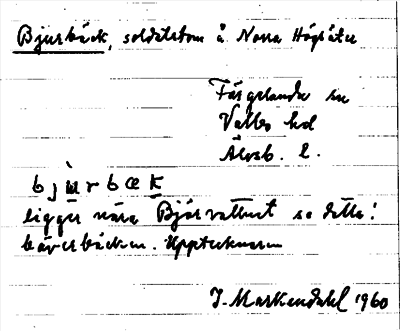 Bjurbäck, soldattorp å Norra Högsäter
Färgelanda sn
Valbo hd
Älvsb. l.
bju̇rbœk
ligger nära Bjursvattnet se detta!
bäverbäcken. Upptecknaren
J. Markendahl 1960